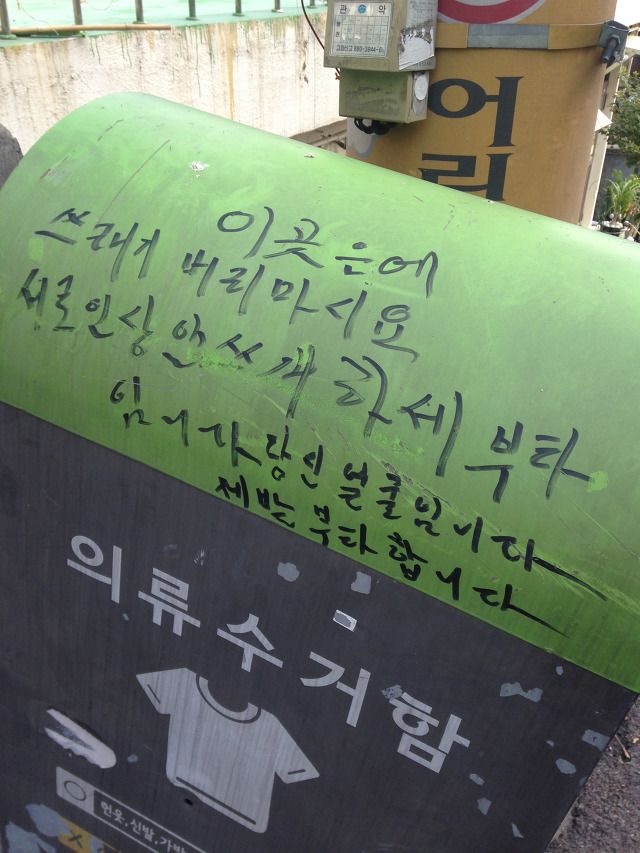 관 악
어린
이곳은에
쓰래기 버리마시요
서로인상안쓰개 하세 부타
임니다 당신 얼굴임니다
제발 부탁합니다
의류수거함
헌옷,신발,가방